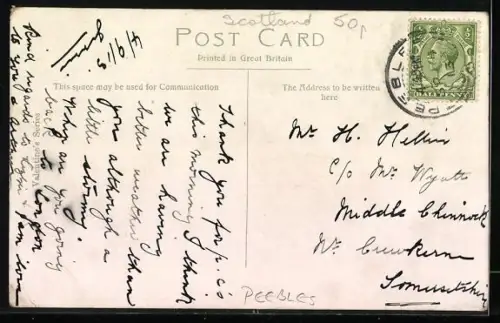 Scotland 50p
POST CARD
Printed in Great Britain
This space may be used for Communication
The Address to be written
here
Valentine's Series
PEEBLES
Thank you for p.c's
this morning I think
we are having
better weather than
you although a
little stormy.
When are you going
back to London
Kind regards to
to you &
4/10/15
Mr H. Hellier
c/o Mr Wyatt
Middle Chinnock
Nr. Crewkerne
Somersetshire
PEEBLES